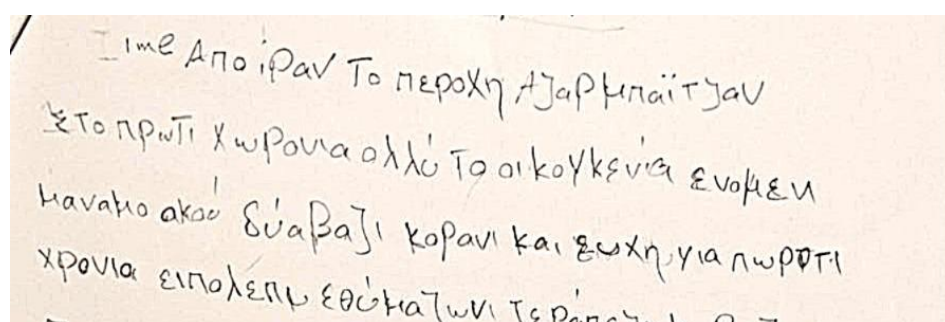 Ιme Απο ίραν Το περοχη Αζαρμπαϊτζαν
Στο πρωτι χωρονια ολλύ το οικογκενία ενομενι
μαναμο ακού δύαβαζι κορανι και εωχη για πωροτι
χρονια ειπολέπι εθύματωνι